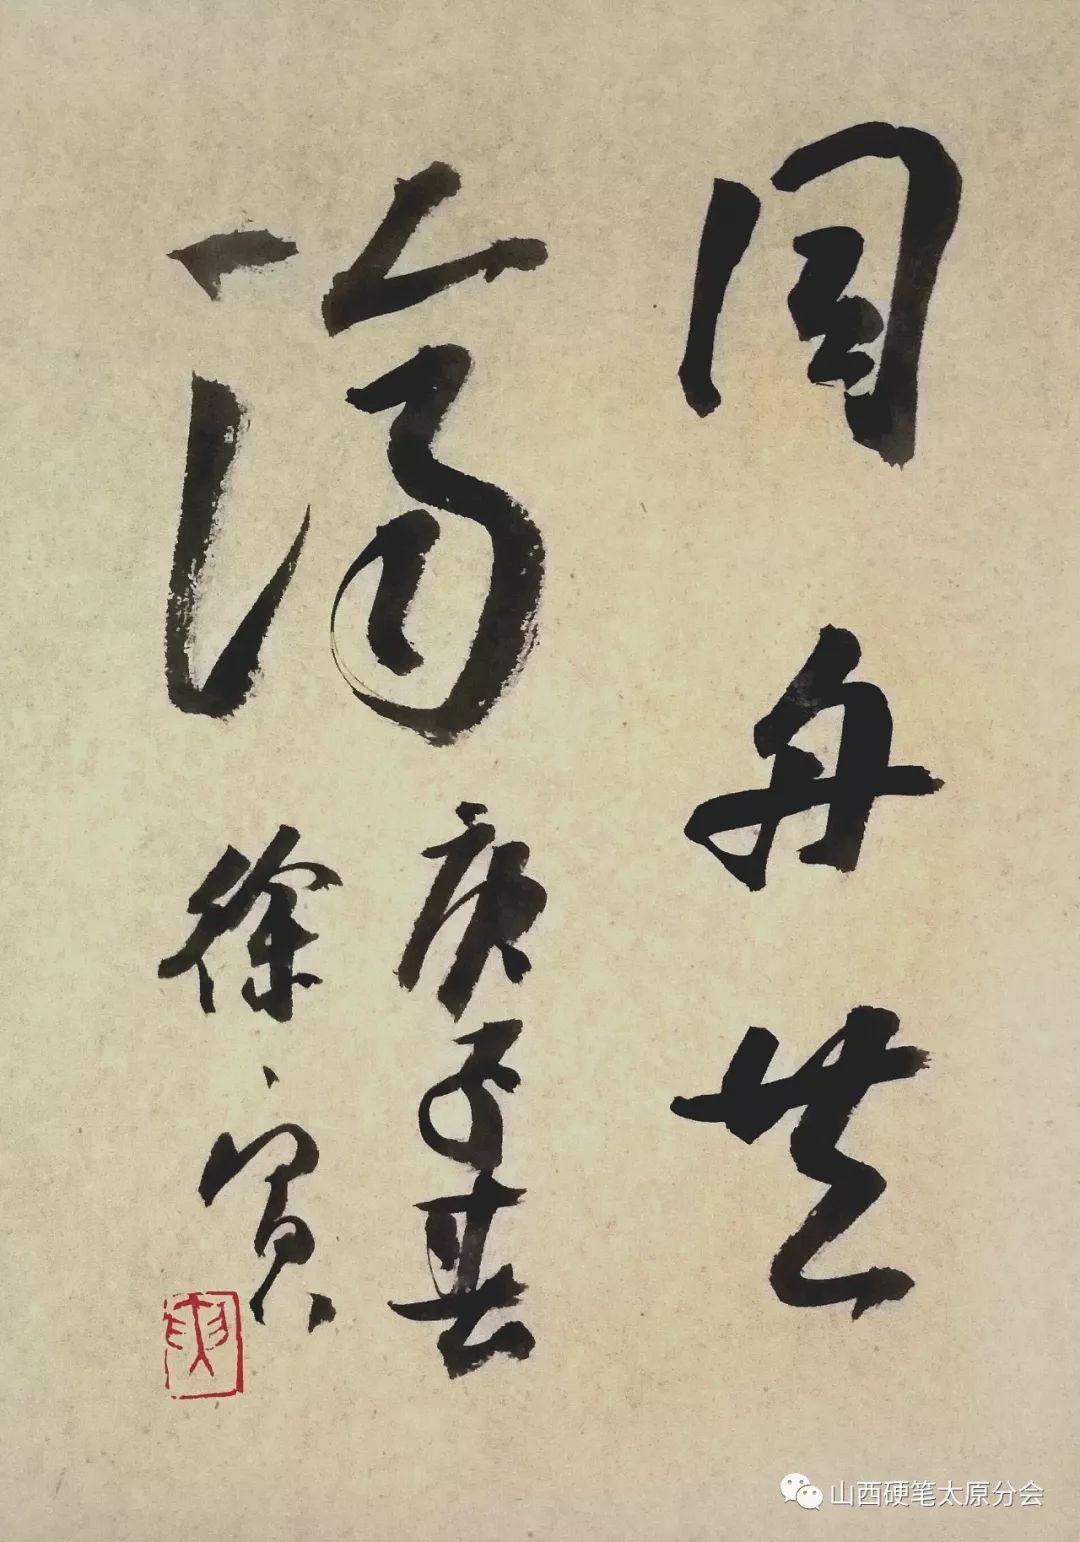 同舟共
濟
庚子春
徐
山西硬笔太原分会